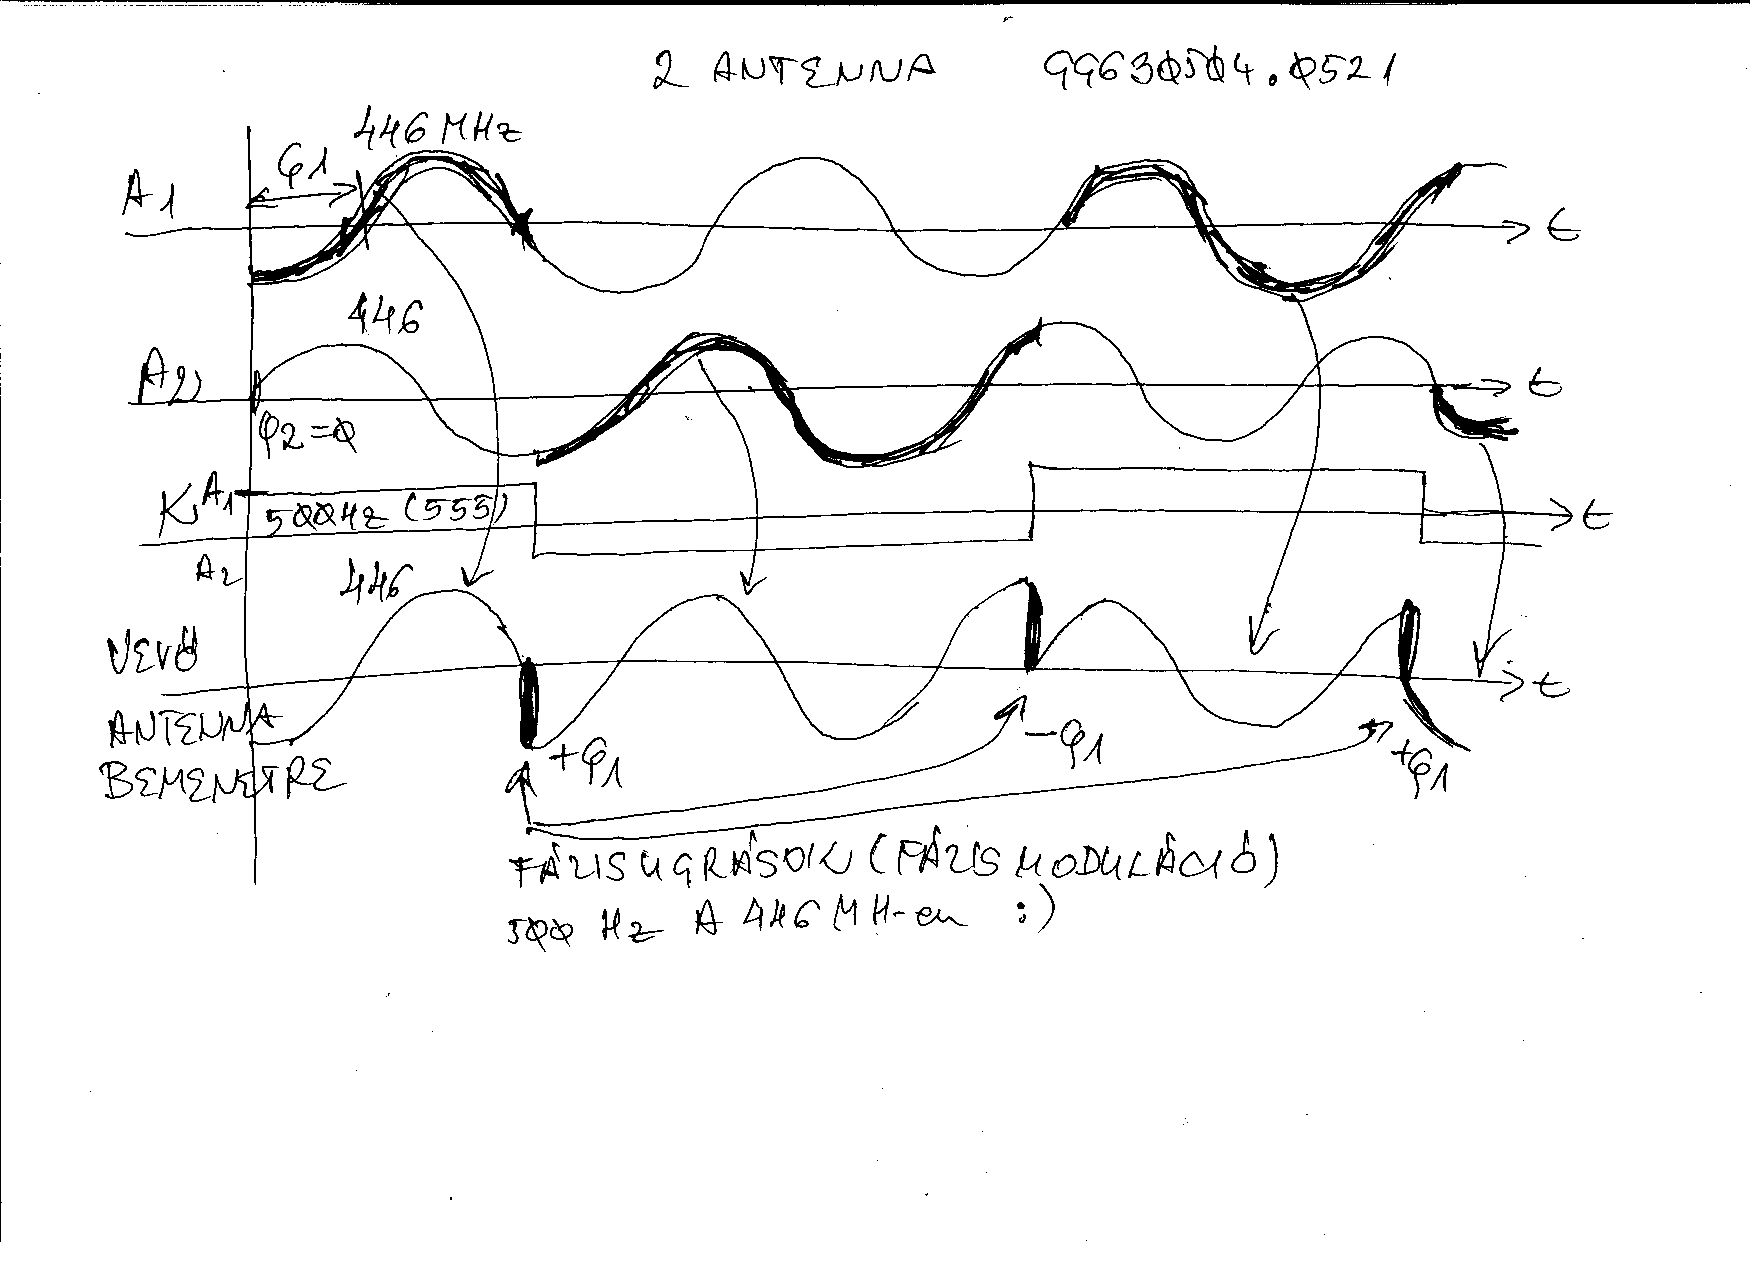 2 ANTENNA 99630504.0521
446 MHz
φ1
A1
t
446
A2
t
φ2=0
K
A1
500Hz (555)
t
A2
446
VEVŐ
t
ANTENNA
BEMENETRE
+φ1
-φ1
+φ1
FÁZISUGRÁSOK (FÁZISMODULÁCIÓ)
500 Hz A 446 MH-en :)